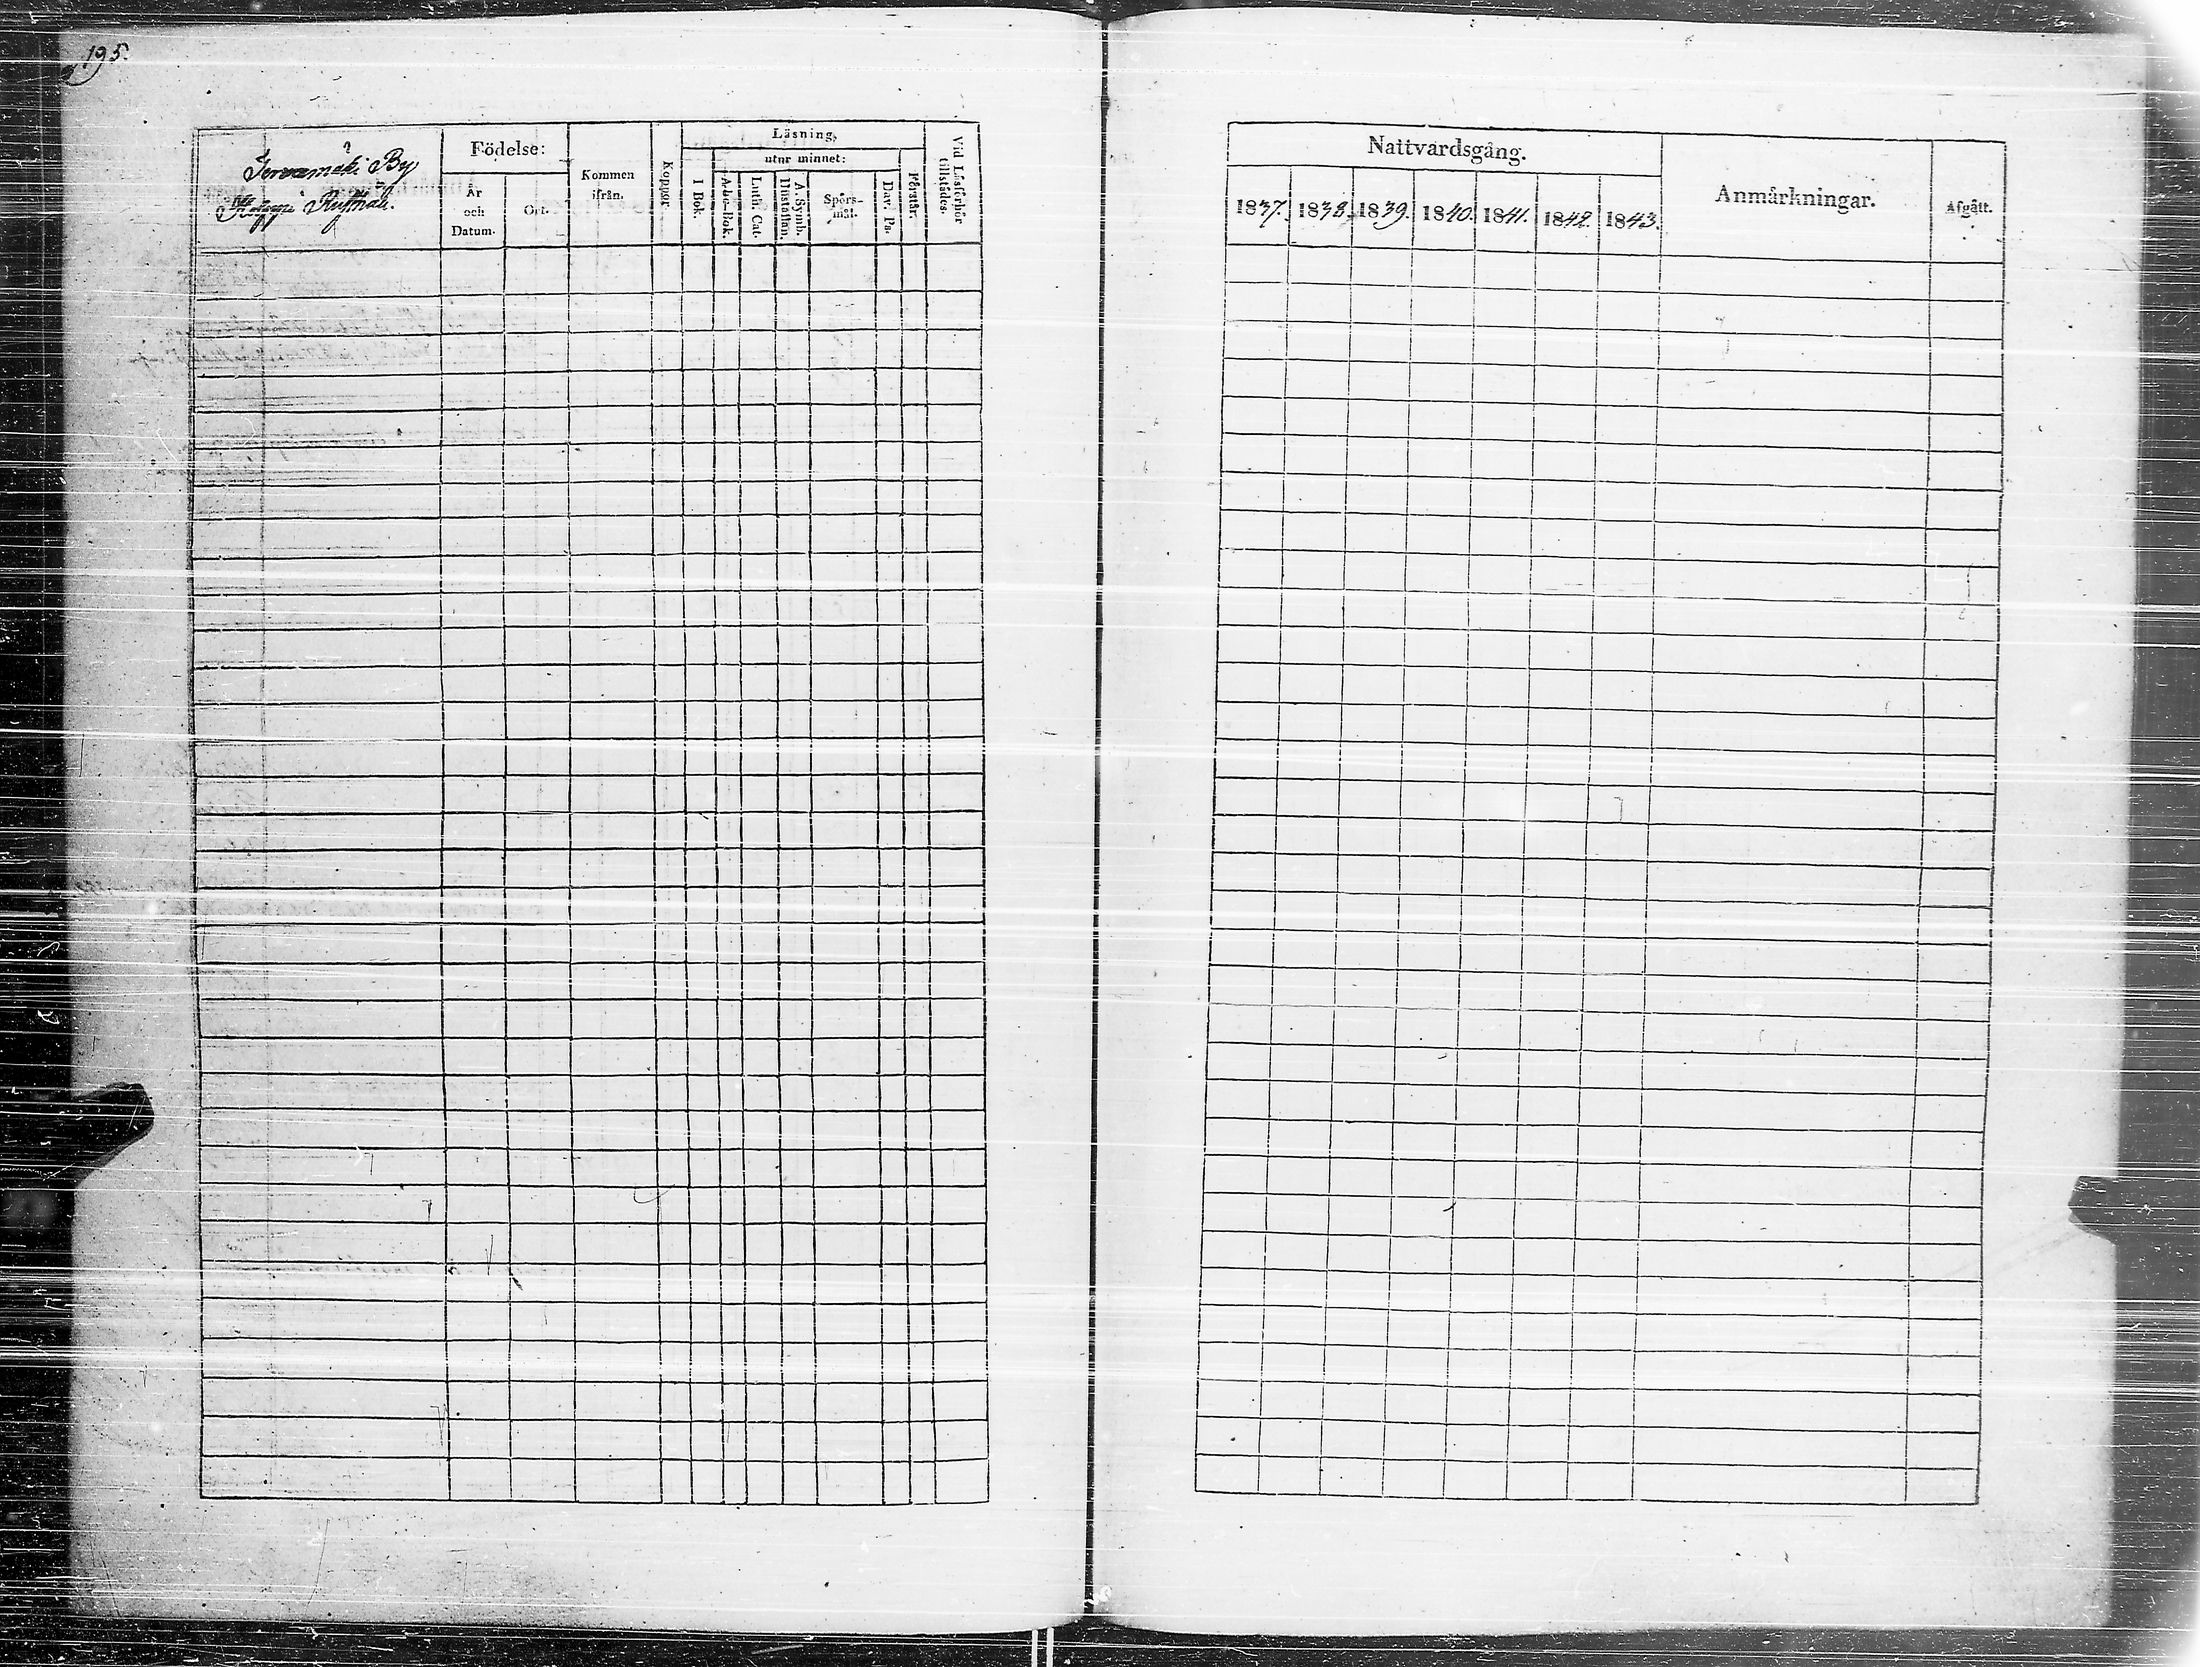 195.
By
Födelse:
År
och
Datum.
Ort.
Kommen
ifrån.
Koppor.
Läsning,
utur minnet:
I Bok.
A-b-c-Bok.
Luth. Cat.
A. Symb.
Hustaflan.
Spörs-
mål.
Dav. Ps.
Förstår.
Vid Läsförhör
tillstädes.
Nattvardsgång.
1837.
1838.
1839.
1840.
1841.
1842.
1843.
Anmårkningar.
Afgått.